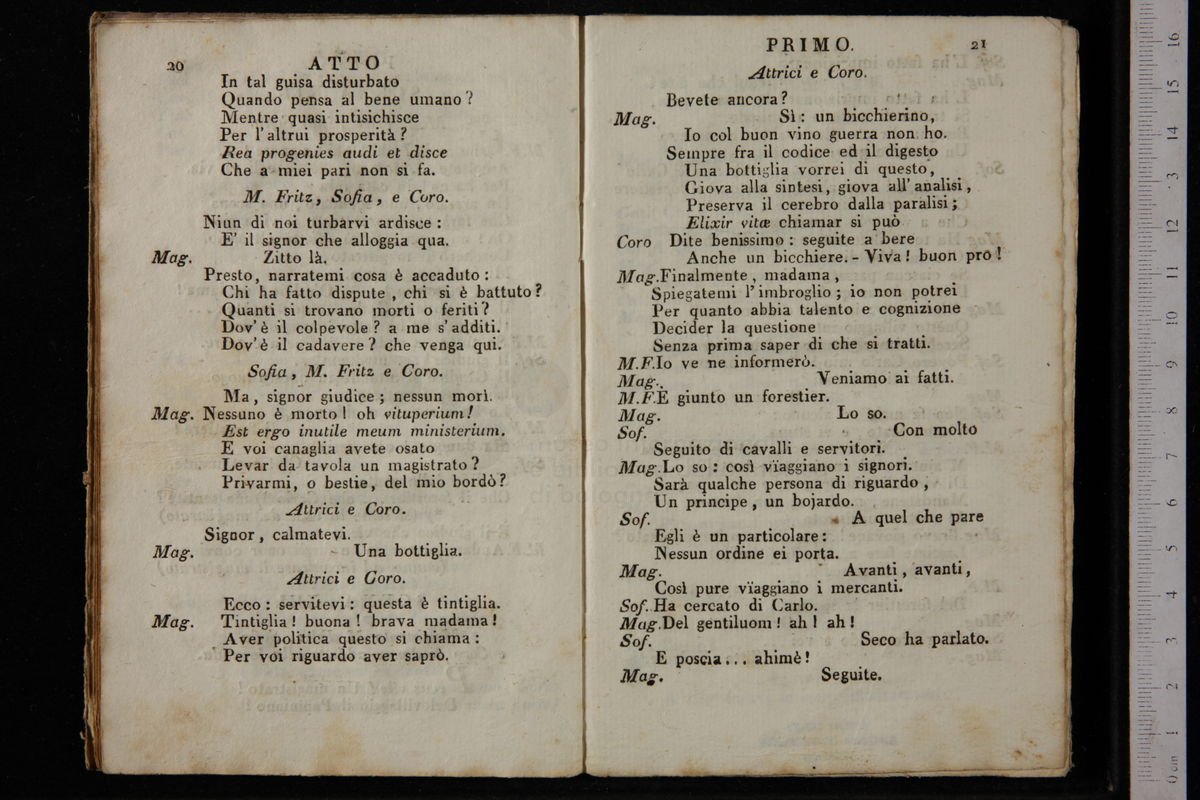 20
ATTO
In tal guisa disturbato
Quando pensa al bene umano?
Mentre quasi intisichisce
Per l'altrui prosperità?
Rea progenies audi et disce
Che a miei pari non si fa.
M. Fritz, Sofia, e Coro.
Niun di noi turbarvi ardisce:
E' il signor che alloggia qua.
Mag. Zitto là.
Presto, narratemi cosa è accaduto:
Chi ha fatto dispute, chi si è battuto?
Quanti si trovano morti o feriti?
Dov'è il colpevole? a me s'additi.
Dov'è il cadavere? che venga qui.
Sofia, M. Fritz e Coro.
Ma, signor giudice; nessun morì.
Mag. Nessuno è morto! oh vituperium!
Est ergo inutile meum ministerium.
E voi canaglia avete osato
Levar da tavola un magistrato?
Privarmi, o bestie, del mio bordò?
Attrici e Coro.
Signor, calmatevi.
Mag. Una bottiglia.
Attrici e Coro.
Ecco: servitevi: questa è tintiglia.
Mag. Tintiglia! buona! brava madama!
Aver politica questo si chiama:
Per voi riguardo aver saprò.
PRIMO.
21
Attrici e Coro.
Bevete ancora?
Mag. Sì: un bicchierino,
Io col buon vino guerra non ho.
Sempre fra il codice ed il digesto
Una bottiglia vorrei di questo,
Giova alla sintesi, giova all'analisi,
Preserva il cerebro dalla paralisi;
Elixir vitæ chiamar si può
Coro Dite benissimo: seguite a bere
Anche un bicchiere. - Viva! buon prò!
Mag. Finalmente, madama,
Spiegatemi l'imbroglio; io non potrei
Per quanto abbia talento e cognizione
Decider la questione
Senza prima saper di che si tratti.
M.F. Io ve ne informerò.
Mag. Veniamo ai fatti.
M.F. È giunto un forestier.
Mag. Lo so.
Sof. Con molto
Seguito di cavalli e servitori.
Mag. Lo so: così vïaggiano i signori.
Sarà qualche persona di riguardo,
Un principe, un bojardo.
Sof. A quel che pare
Egli è un particolare:
Nessun ordine ei porta.
Mag. Avanti, avanti,
Così pure vïaggiano i mercanti.
Sof. Ha cercato di Carlo.
Mag. Del gentiluom! ah! ah!
Sof. Seco ha parlato.
E poscia... ahimè!
Mag. Seguite.
0 cm 1 2 3 4 5 6 7 8 9 10 11 12 13 14 15 16